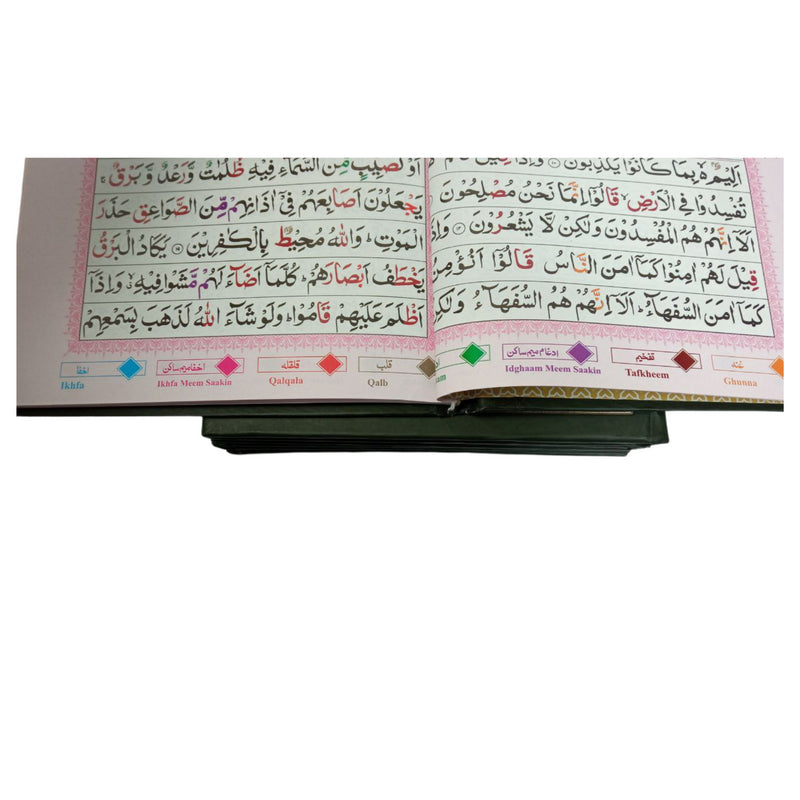 اَلِيْمٌۢ ۙ۬ بِمَا كَانُوْا يَكْذِبُوْنَ ۝۱۰ وَاِذَا قِيْلَ
تُفْسِدُوْا فِي الْاَرْضِ ۙ قَالُوْۤا اِنَّمَا نَحْنُ مُصْلِحُوْنَ
اَلَاۤ اِنَّهُمْ هُمُ الْمُفْسِدُوْنَ وَلٰكِنْ لَّا يَشْعُرُوْنَ ۝۱۲ وَاِذَا
قِيْلَ لَهُمْ اٰمِنُوْا كَمَاۤ اٰمَنَ النَّاسُ قَالُوْۤا اَنُؤْمِنُ
كَمَاۤ اٰمَنَ السُّفَهَآءُ ؕ اَلَاۤ اِنَّهُمْ هُمُ السُّفَهَآءُ وَلٰكِنْ
غنّه
Ghunna
تفخیم
Tafkheem
ادغام میم ساکن
Idghaam Meem Saakin
اَوْ كَصَيِّبٍ مِّنَ السَّمَآءِ فِيْهِ ظُلُمٰتٌ وَّرَعْدٌ وَّبَرْقٌ ۚ
يَجْعَلُوْنَ اَصَابِعَهُمْ فِيْۤ اٰذَانِهِمْ مِّنَ الصَّوَاعِقِ حَذَرَ
الْمَوْتِ ؕ وَاللّٰهُ مُحِيْطٌۢ بِالْكٰفِرِيْنَ ۝۱۹ يَكَادُ الْبَرْقُ
يَخْطَفُ اَبْصَارَهُمْ ؕ كُلَّمَاۤ اَضَآءَ لَهُمْ مَّشَوْا فِيْهِ ۙ وَاِذَاۤ
اَظْلَمَ عَلَيْهِمْ قَامُوْا ؕ وَلَوْ شَآءَ اللّٰهُ لَذَهَبَ بِسَمْعِهِمْ
قلب
Qalb
قلقله
Qalqala
اخفا میم ساکن
Ikhfa Meem Saakin
اخفا
Ikhfa